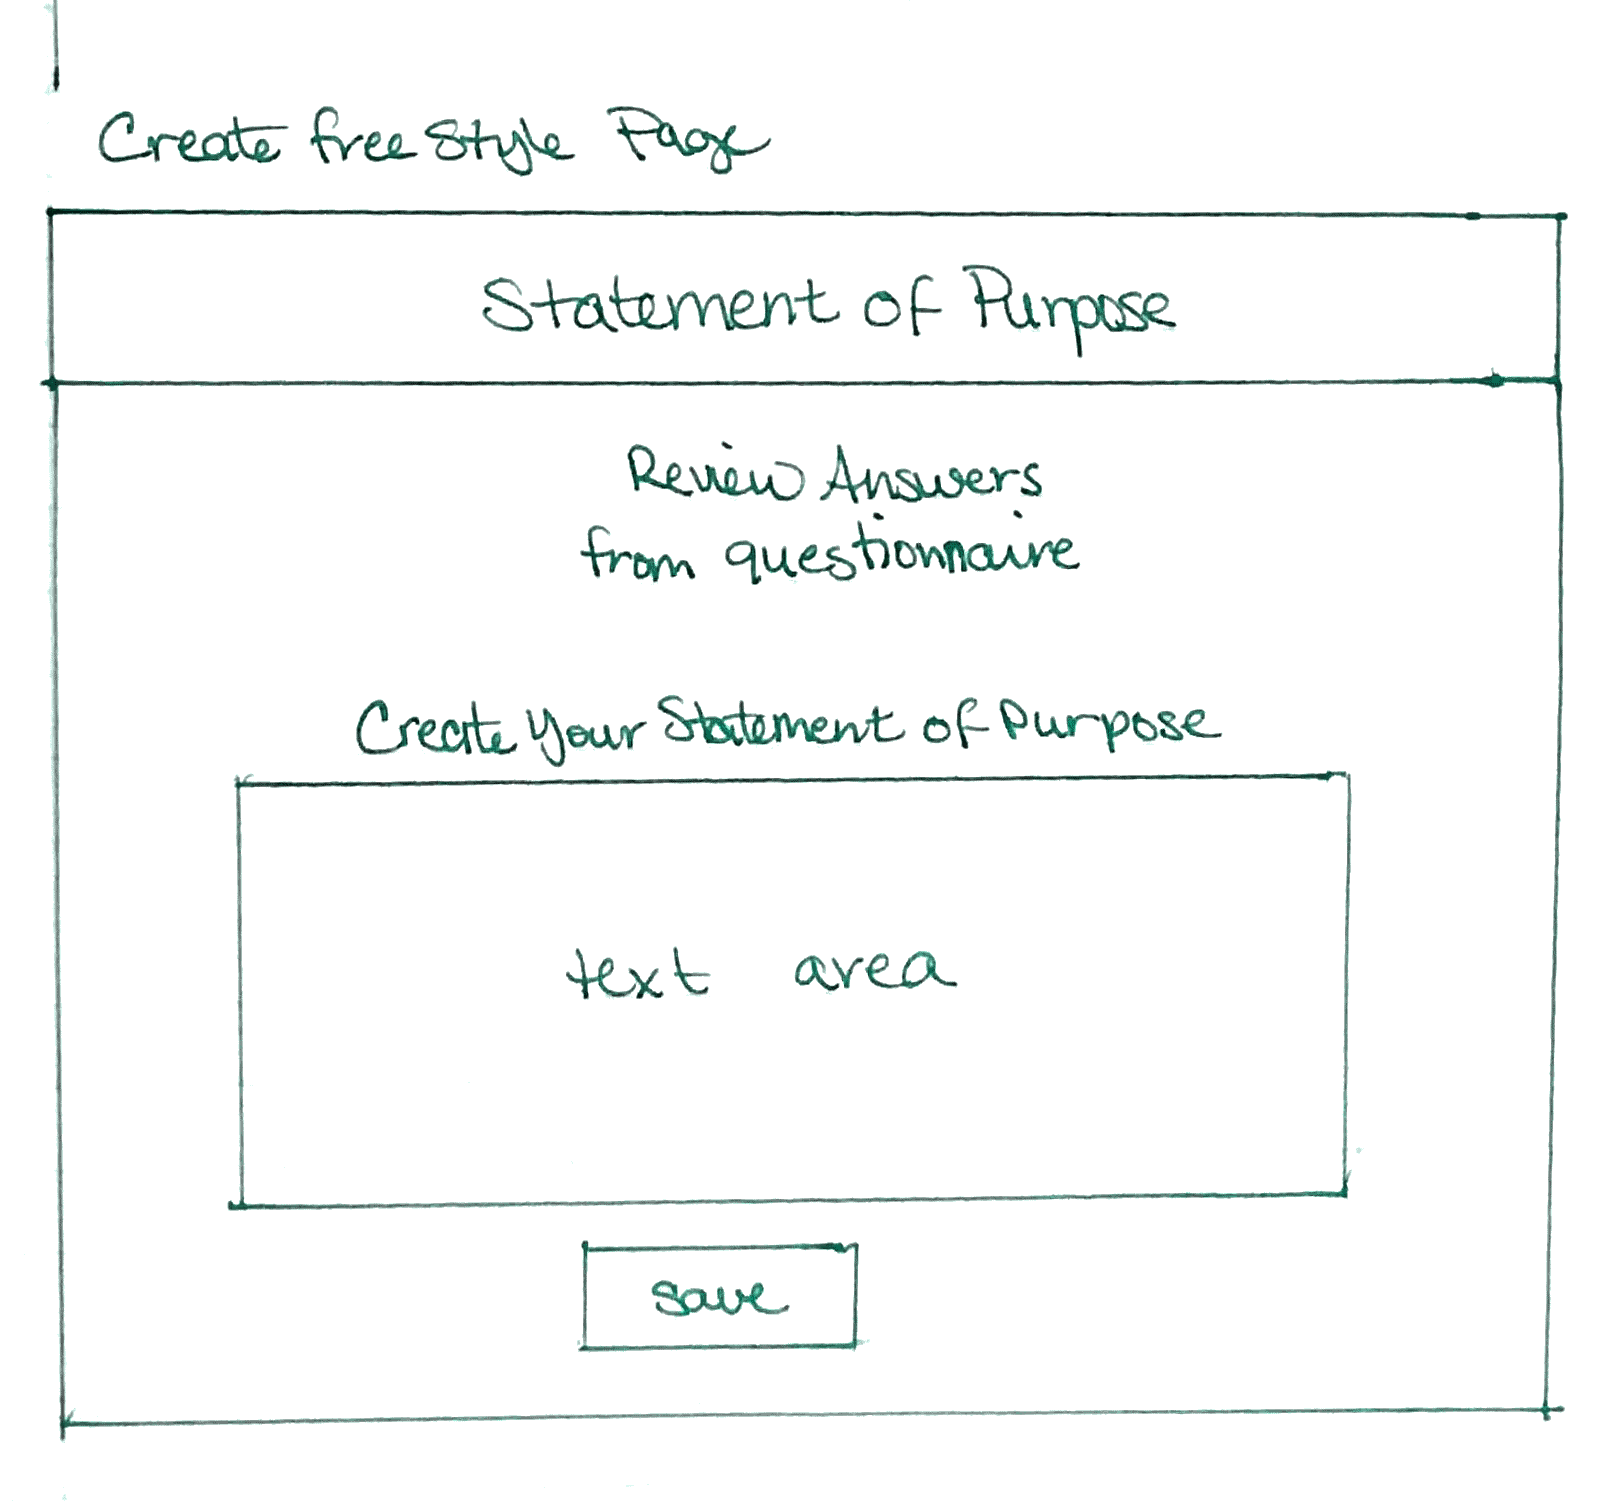 Create free Style Page
Statement of Purpose
Review Answers
from questionnaire
Create Your Statement of Purpose
text area
save